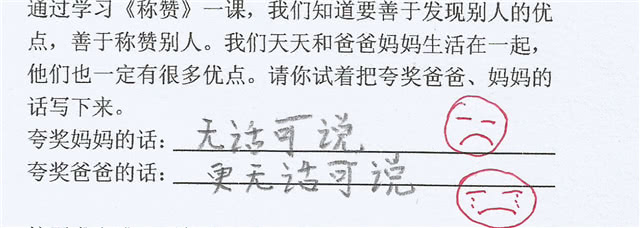 通过学习《称赞》一课，我们知道要善于发现别人的优
点，善于称赞别人。我们天天和爸爸妈妈生活在一起，
他们也一定有很多优点。请你试着把夸奖爸爸、妈妈的
话写下来。
夸奖妈妈的话：无话可说
夸奖爸爸的话：更无话可说